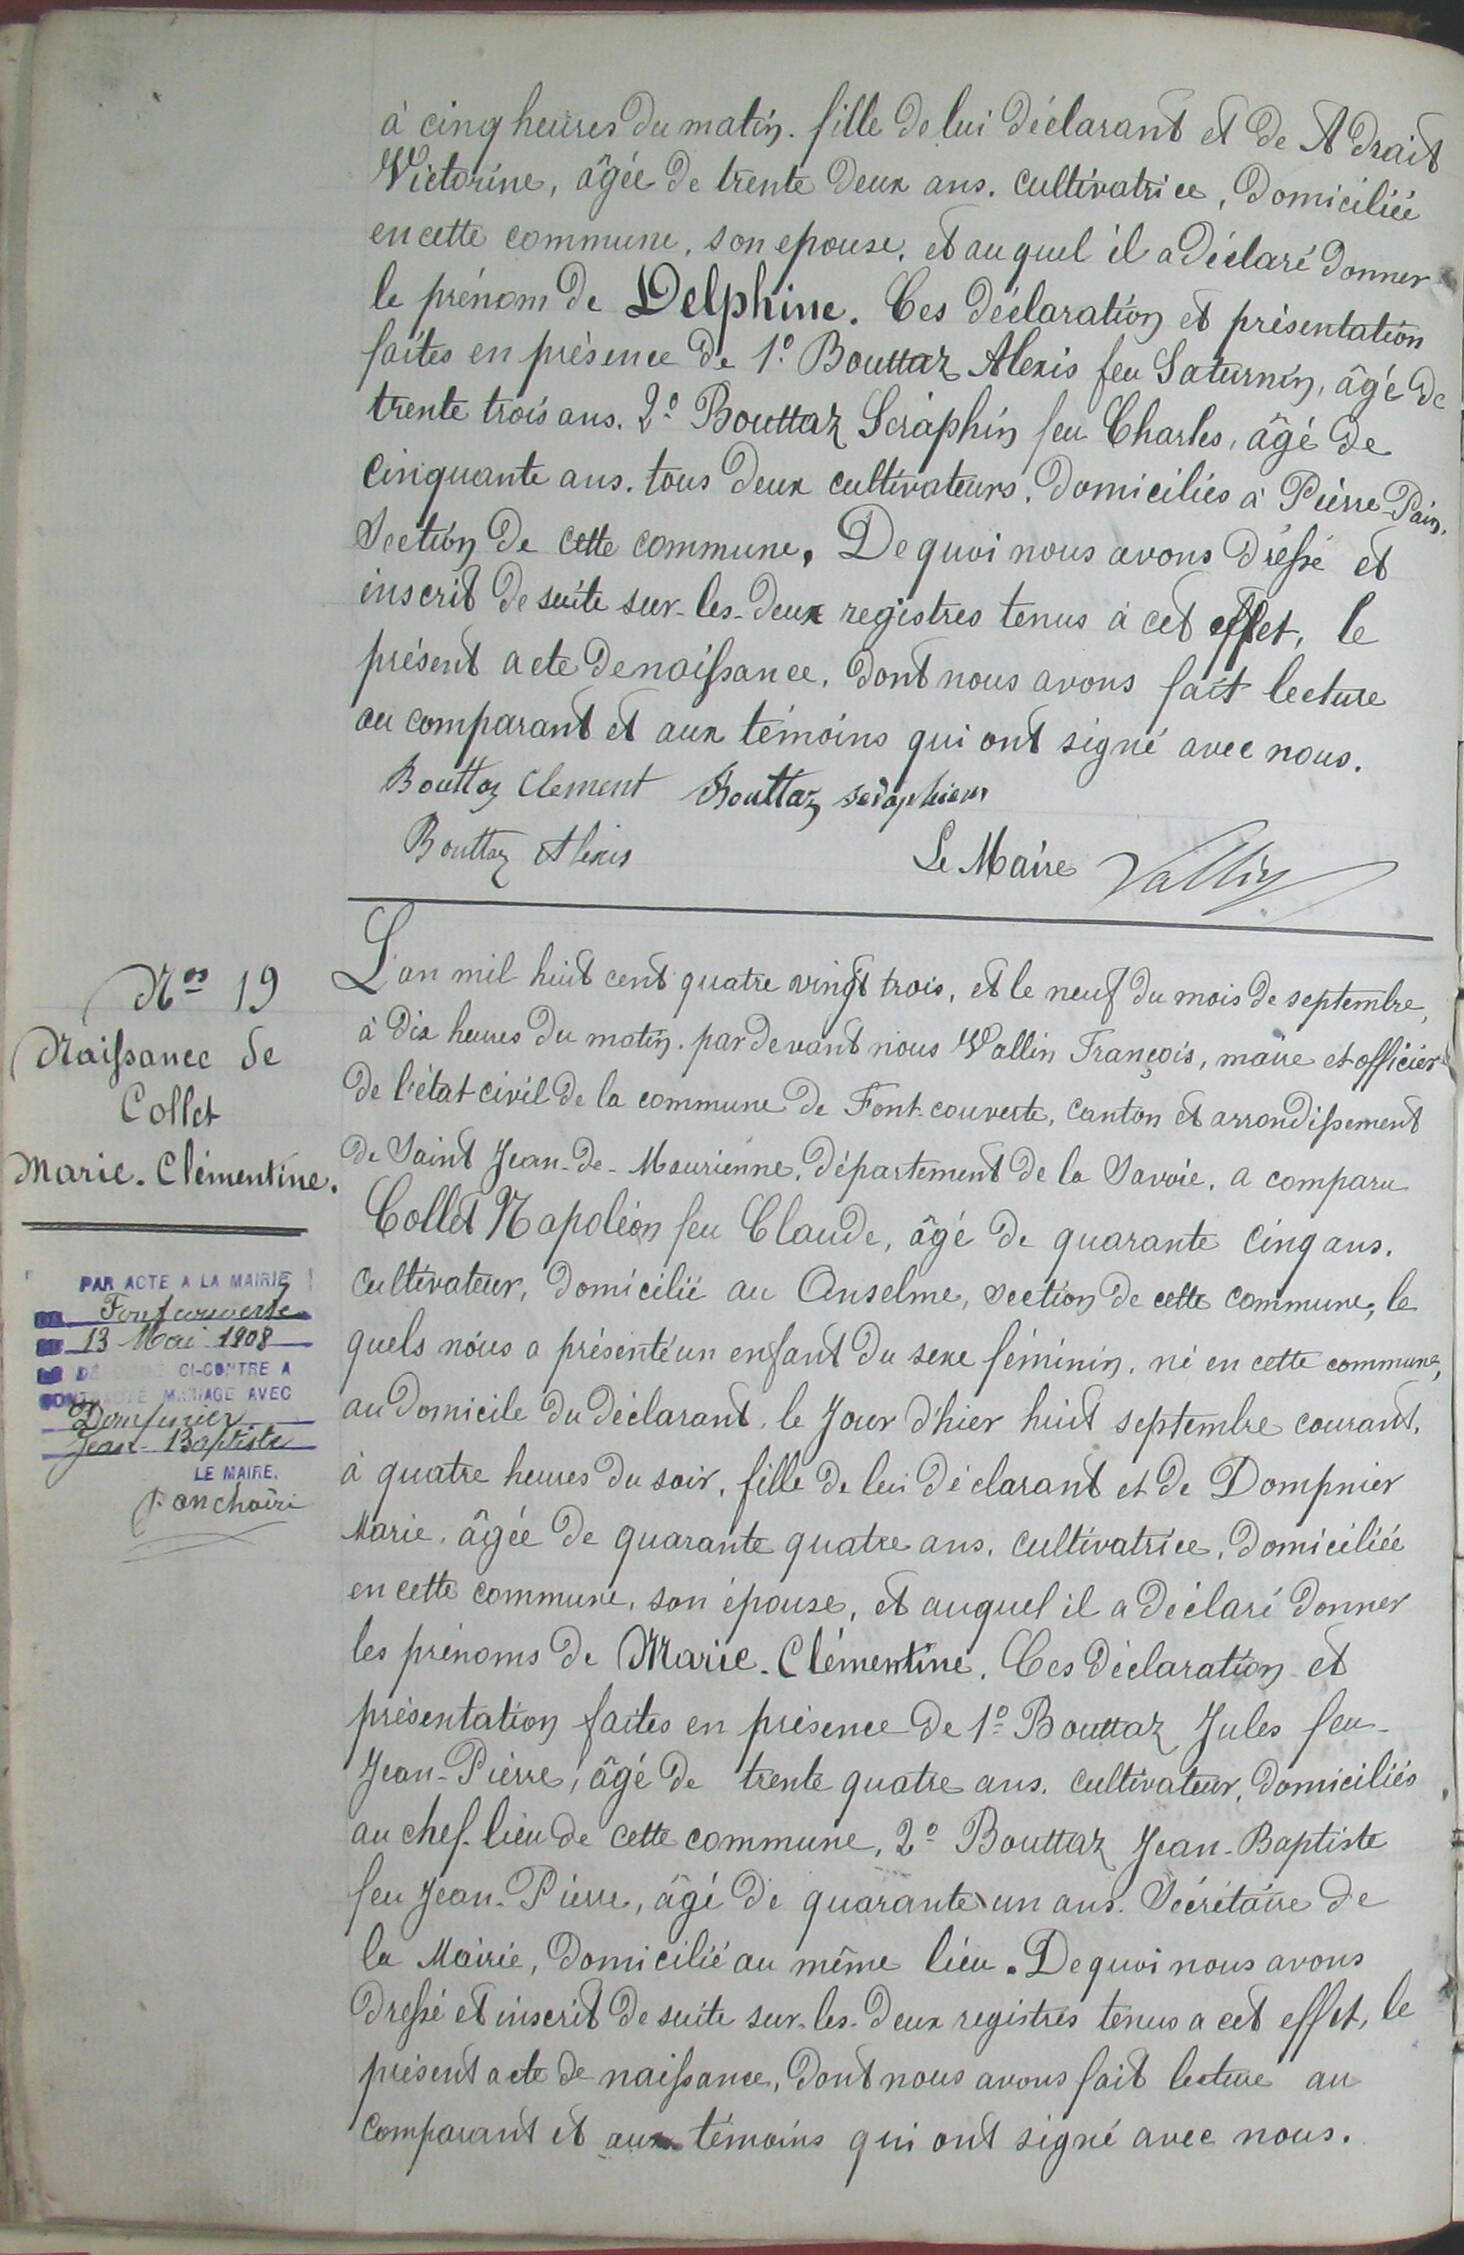 à cinq heures du matin. fille de lui déclarant et de Adrait
Victorine, âgée de trente deux ans. cultivatrice, domiciliée
en cette commune, son epouse, et auquel il a déclaré donner
le prénom de Delphine. Ces déclaration et présentation
faites en présence de 1º Bouttaz Alexis feu Saturnin, âgé de
trente trois ans. 2º Bouttaz Séraphin feu Charles, âgé de
cinquante ans. tous deux cultivateurs, domiciliés à Pierre-Pain,
section de cette commune. De quoi nous avons dressé et
inscrit de suite sur-les-deux registres tenus à cet effet, le
présent acte de naissance, dont nous avons fait lecture
au comparant et aux témoins qui ont signé avec nous.
Bouttaz Clement Bouttaz
Bouttaz Alexis Le Maire Vallin
Nos 19
Naissance de
Collet
Marie-Clémentine.
PAR ACTE A LA MAIRIE
Fontcouverte
13 Mai 1908
CI-CONTRE A
CONTRACTÉ MARIAGE AVEC
Jean-Baptiste
LE MAIRE,
L'an mil huit cent quatre vingt trois, et le neuf du mois de septembre,
à dix heures du matin. par devant nous Vallin François, maire et officier
de l'état-civil de la commune de Font-couverte, canton et arrondissement
de Saint Jean-de-Maurienne, département de la Savoie, a comparu
Collet Napoléon feu Claude, âgé de quarante cinq ans.
cultivateur, domicilié au Anselme, section de cette commune, le
quels nous a présenté un enfant du sexe féminin, né en cette commune,
au domicile du déclarant, le jour d'hier huit septembre courant,
à quatre heures du soir, fille de lui déclarant et de Dompnier
Marie, âgée de quarante quatre ans, cultivatrice, domiciliée
en cette commune, son épouse, et auquel il a déclaré donner
les prénoms de Marie-Clémentine. Ces déclaration et
présentation faites en présence de 1º Bouttaz Jules feu
Jean-Pierre, âgé de trente quatre ans, cultivateur, domiciliés
au chef-lieu de cette commune, 2º Bouttaz Jean-Baptiste
feu Jean-Pierre, âgé de quarante un ans. Sécrétaire de
la Mairie, domicilié au même lieu. De quoi nous avons
dressé et inscrit de suite sur-les-deux registres tenus a cet effet, le
présent acte de naissance, dont nous avons fait lecture au
comparant et aux témoins qui ont signé avec nous.